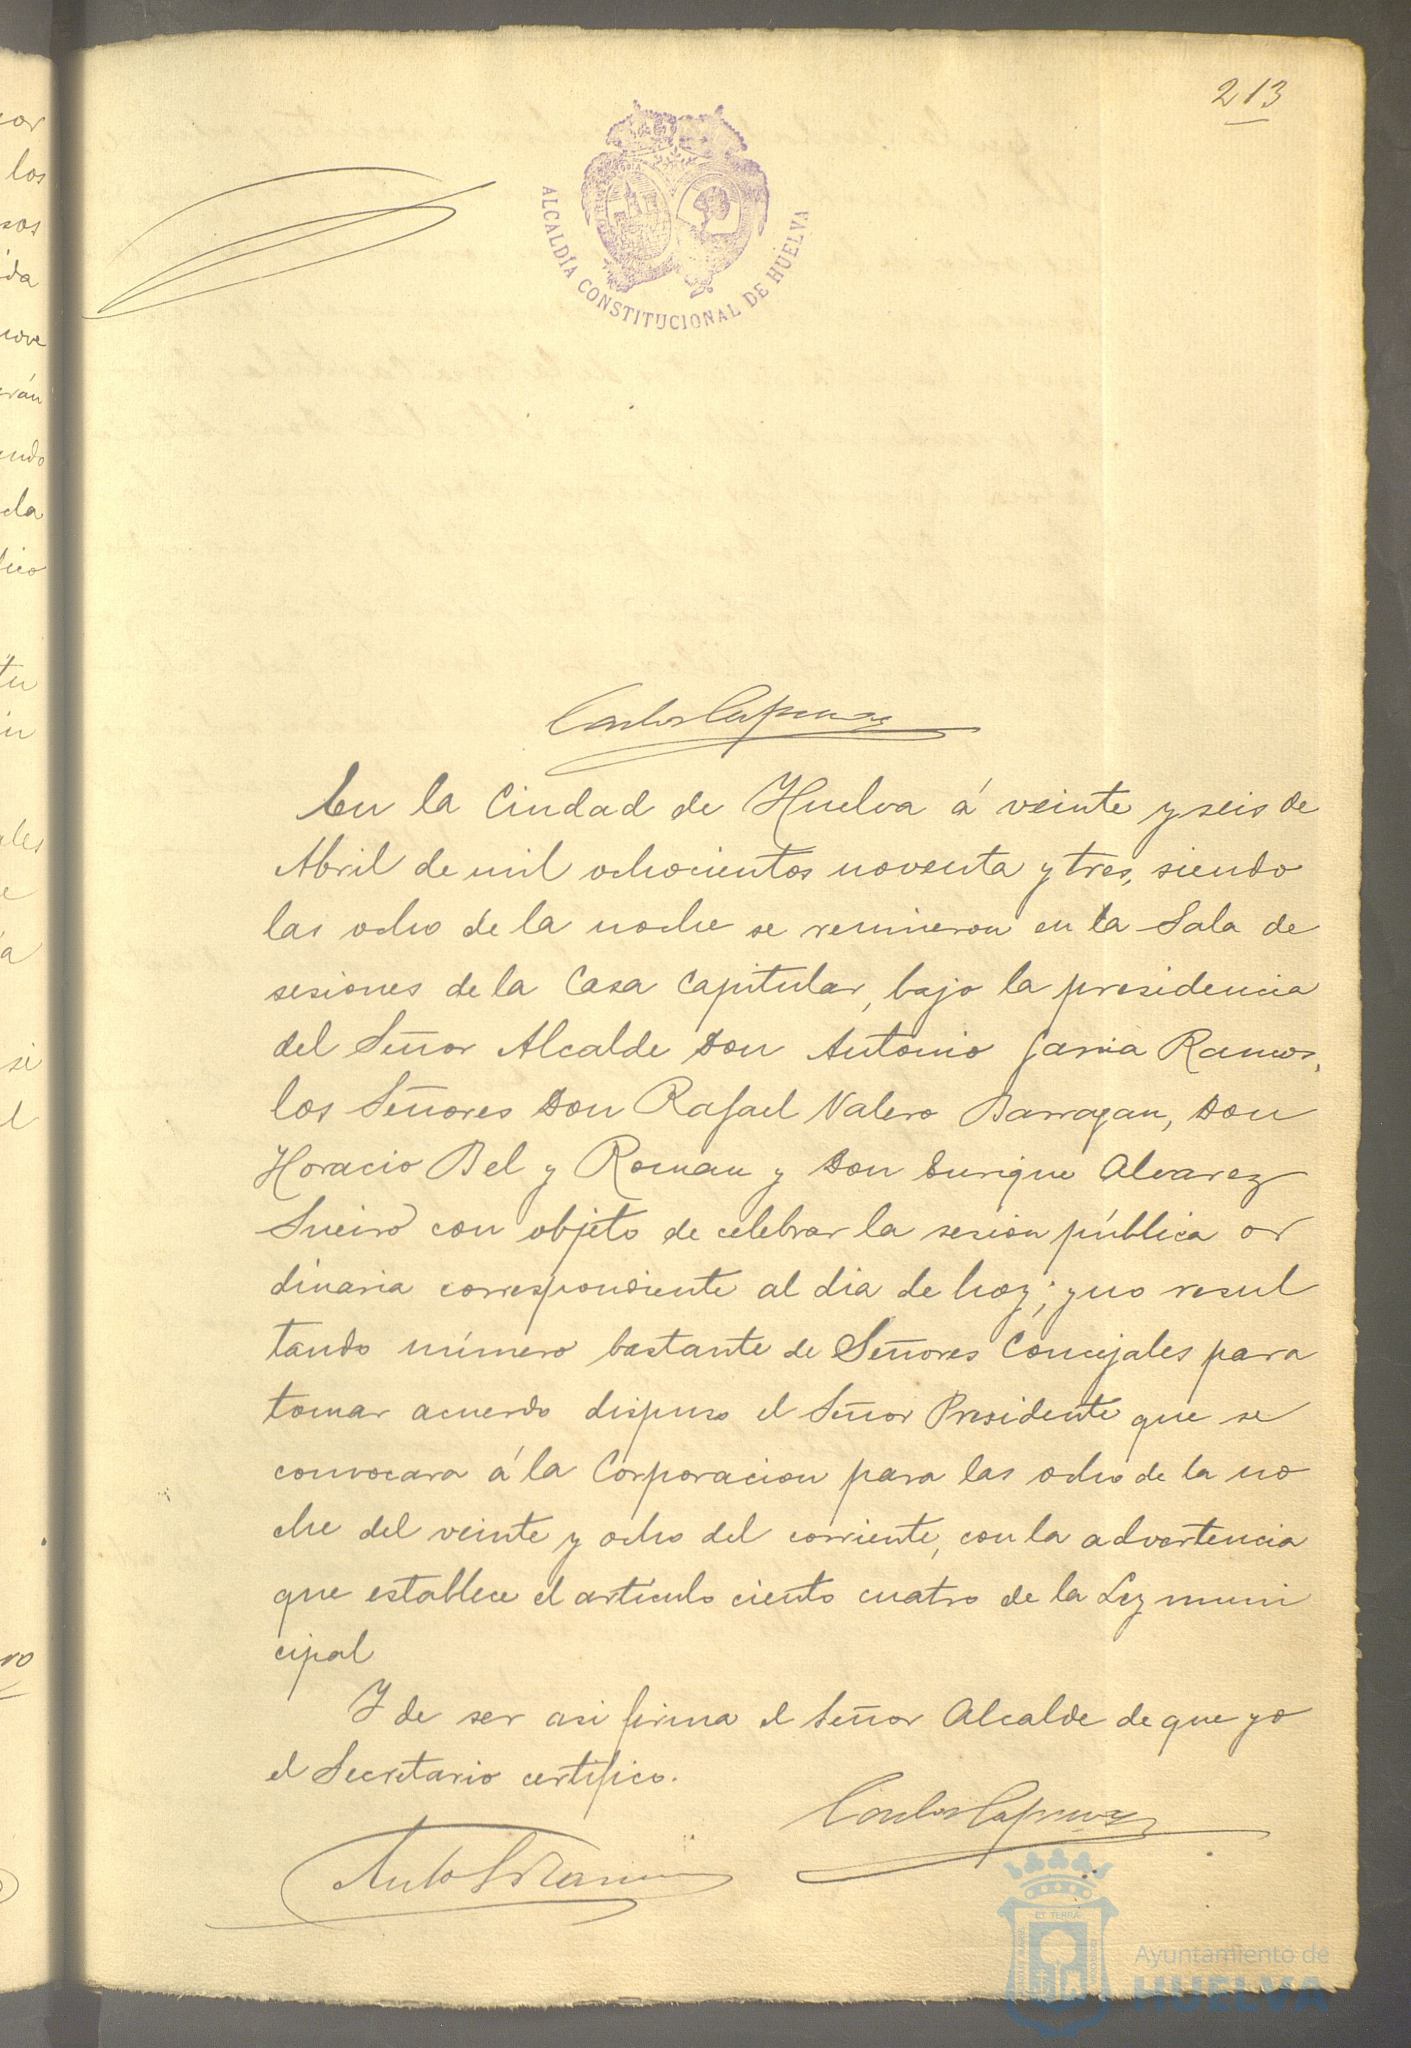 213
ALCALDÍA CONSTITUCIONAL DE HUELVA
En la Ciudad de Huelva á veinte y seis de
Abril de mil ochocientos noventa y tres, siendo
las ocho de la noche se reunieron en la Sala de
sesiones de la Casa Capitular, bajo la presidencia
del Señor Alcalde Don Antonio Garcia Ramos,
los Señores Don Rafael Valero Barragan, Don
Horacio Bel y Roman y Don Enrique Alvarez
Sueiro con objeto de celebrar la sesion pública or
dinaria correspondiente al dia de hoy; y no resul
tando número bastante de Señores Concejales para
tomar acuerdo dispuso el Señor Presidente que se
convocara á la Corporacion para las ocho de la no
che del veinte y ocho del corriente, con la advertencia
que establece el artículo ciento cuatro de la Ley muni
cipal
Y de ser asi firma el Señor Alcalde de que yo
el Secretario certifico.
Ayuntamiento de
HUELVA